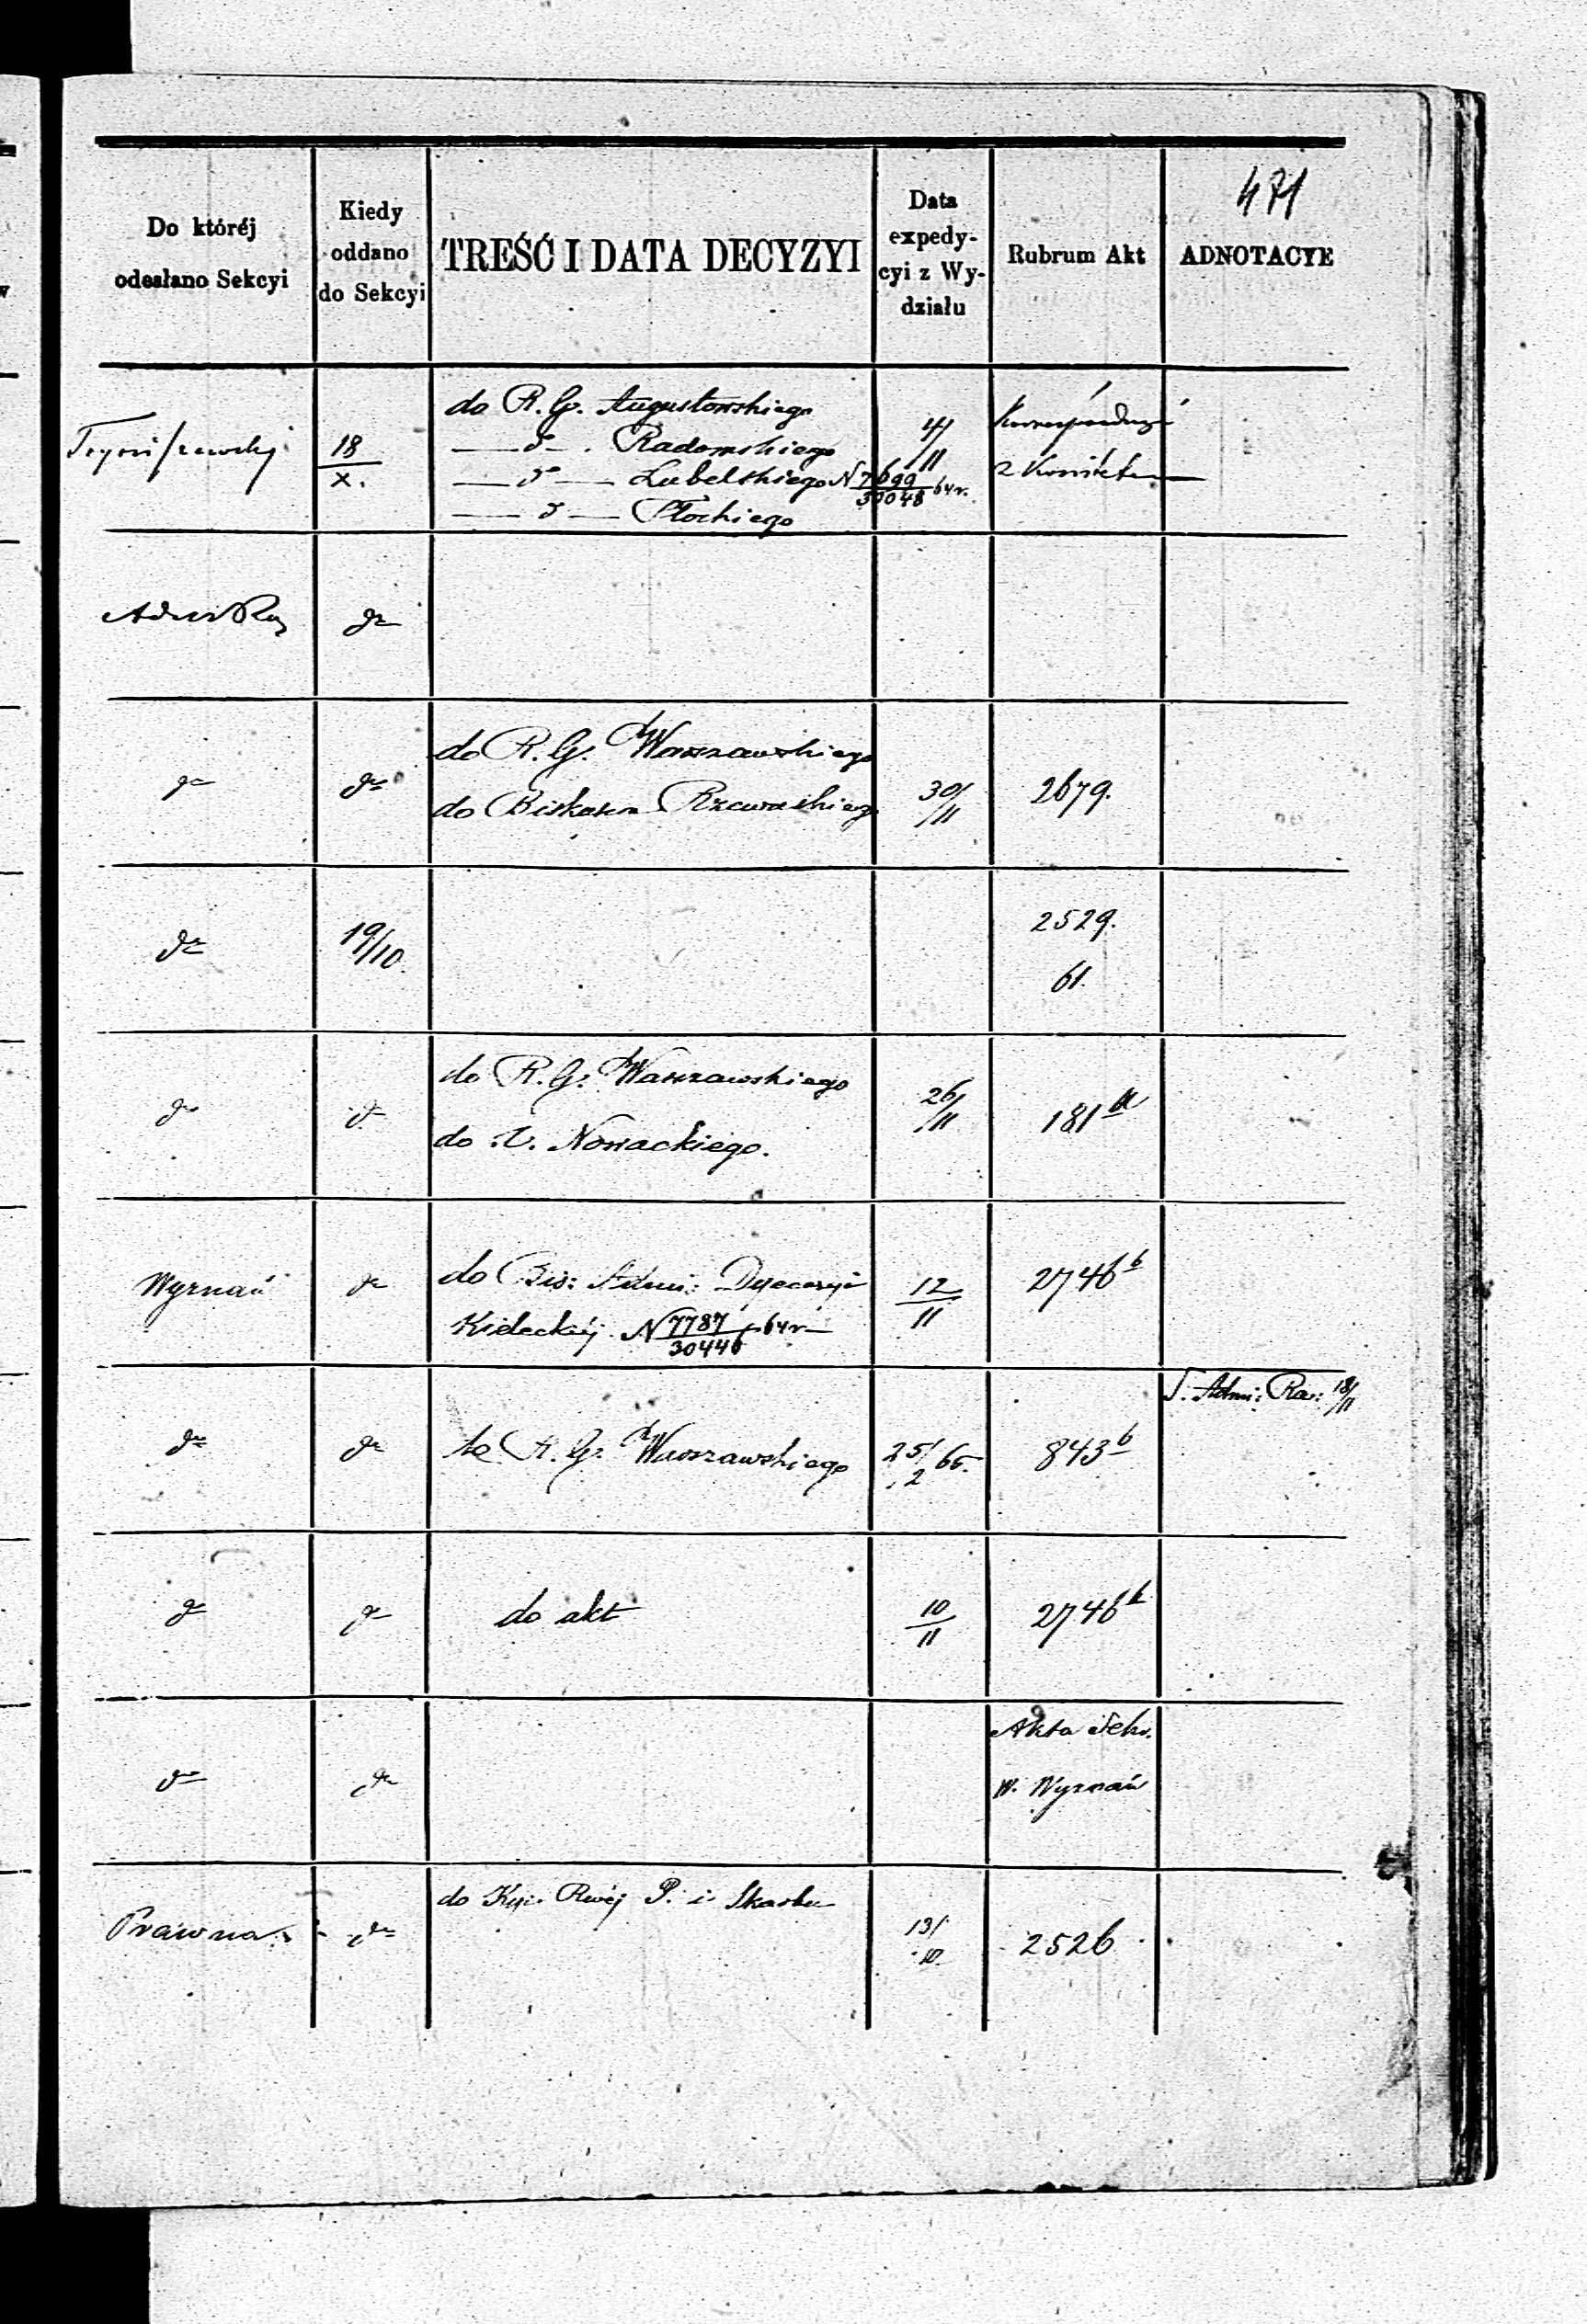 471
Do któréj
odesłano Sekcyi
Kiedy
oddano
do Sekcyi
TREŚĆ I DATA DECYZYI
Data
expedy-
cyi z Wy-
działu
Rubrum Akt
ADNOTACYE
18/X.
do R. G. Augustowskiego
— d° — Radomskiego
— d° — Lubelskiego N 7699/30048 64 r.
— d° — Płockiego
4/11
Korrespondencyi
z Komitetem
do
do
do
do R. G. Warszawskiego
do Biskupa Rzewuskiego
30/11
2679.
do
19/10.
2529.
61.
do
do
do R. G. Warszawskiego
do Nowackiego.
26/11
181
Wyznań
do
do Bis: Admi: Dyecezyi
Kieleckiéj N 7787/30446 64 r
12/11
2746 b
do
do
R. G. Warszawskiego
25/2 65.
843 b
S. Admi: Ra: 18/11
do
do
do akt
10/11
2746
do
do
Akta Sek.
W. Wyznań
Prawna
do
do P. i Skarbu
13/10.
2526